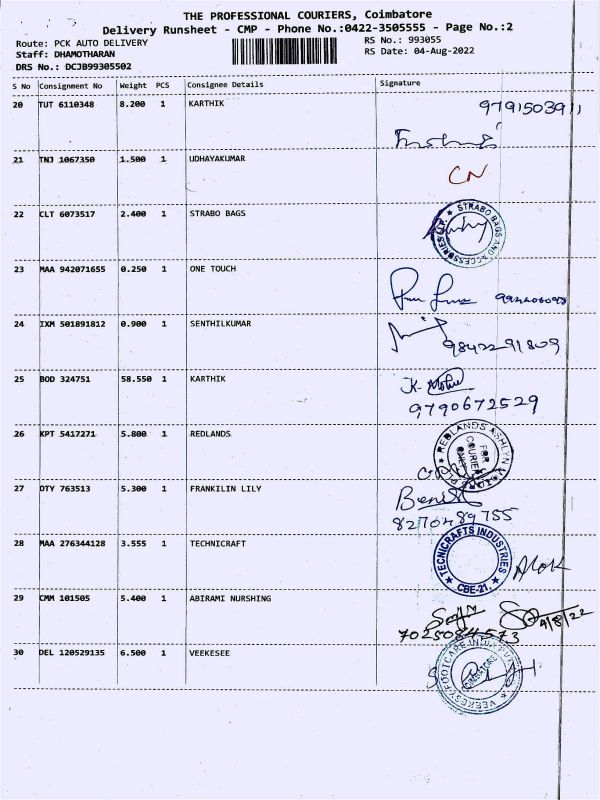 THE PROFESSIONAL COURIERS, Coimbatore
Delivery Runsheet - CMP - Phone No.:0422-3505555 - Page No.:2
Route: PCK AUTO DELIVERY
RS No.: 993055
Staff: DHAMOTHARAN
RS Date: 04-Aug-2022
DRS No.: DCJB99305502
S No Consignment No Weight PCS Consignee Details Signature
20 TUT 6110348 8.200 1 KARTHIK
21 TNJ 1067350 1.500 1 UDHAYAKUMAR
CN
22 CLT 6073517 2.400 1 STRABO BAGS
STRABO BAGS AND ACCESSORIES LLP.
23 MAA 942071655 0.250 1 ONE TOUCH
24 IXM 501891812 0.900 1 SENTHILKUMAR
98422 91809
25 BOD 324751 58.550 1 KARTHIK
9790672529
26 KPT 5417271 5.800 1 REDLANDS
REDLANDS ASHLYN
FOR COURIER ONLY
27 DTY 763513 5.300 1 FRANKILIN LILY
82704 89755
28 MAA 276344128 3.555 1 TECHNICRAFT
TECNICRAFTS INDUSTRIES
CBE-21
29 CMM 101505 5.400 1 ABIRAMI NURSHING
4/8/22
7025084573
30 DEL 120529135 6.500 1 VEEKESEE